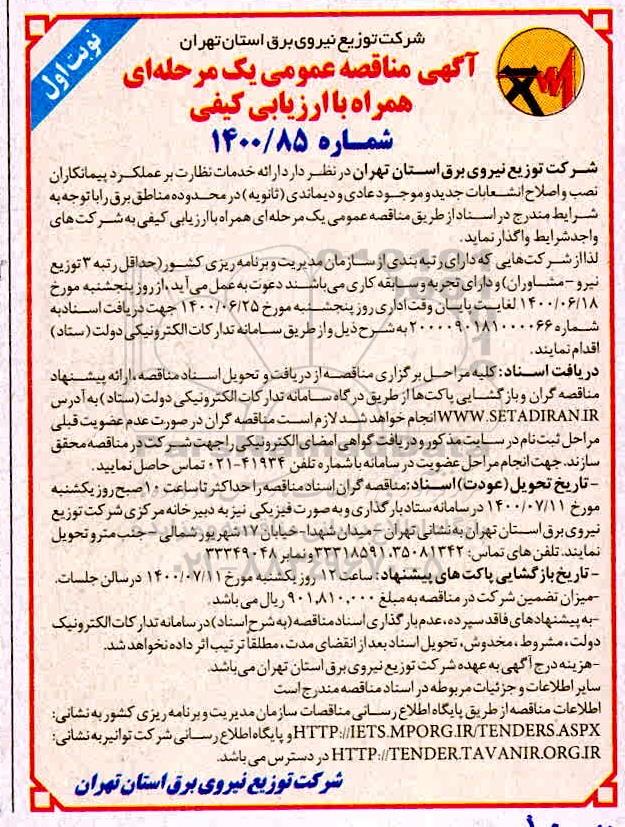 نوبت اول
شرکت توزیع نیروی برق استان تهران
آگهی مناقصه عمومی یک مرحله‌ای
همراه با ارزیابی کیفی
شماره ۱۴۰۰/۸۵
شرکت توزیع نیروی برق استان تهران در نظر دارد ارائه خدمات نظارت بر عملکرد پیمانکاران
نصب و اصلاح انشعابات جدید و موجود عادی و دیماندی (ثانویه) در محدوده مناطق برق را با توجه به
شرایط مندرج در اسناد از طریق مناقصه عمومی یک مرحله ای همراه با ارزیابی کیفی به شرکت های
واجد شرایط واگذار نماید.
لذا از شرکت‌هایی که دارای رتبه بندی از سازمان مدیریت و برنامه ریزی کشور (حداقل رتبه ۳ توزیع
نیرو - مشاوران) و دارای تجربه و سابقه کاری می‌باشند دعوت به عمل می‌آید، از روز پنجشنبه مورخ
۱۴۰۰/۰۶/۱۸ لغایت پایان وقت اداری روز پنجشنبه مورخ ۱۴۰۰/۰۶/۲۵ جهت دریافت اسناد به
شماره ۲۰۰۰۰۹۰۱۸۱۰۰۰۰۶۶ به شرح ذیل و از طریق سامانه تدارکات الکترونیکی دولت (ستاد)
اقدام نمایند.
دریافت اسناد: کلیه مراحل برگزاری مناقصه از دریافت و تحویل اسناد مناقصه، ارائه پیشنهاد
مناقصه گران و بازگشایی پاکت‌ها از طریق درگاه سامانه تدارکات الکترونیکی دولت (ستاد) به آدرس
WWW.SETADIRAN.IR انجام خواهد شد لازم است مناقصه گران در صورت عدم عضویت قبلی
مراحل ثبت نام در سایت مذکور و دریافت گواهی امضای الکترونیکی را جهت شرکت در مناقصه محقق
سازند. جهت انجام مراحل عضویت در سامانه با شماره تلفن ۴۱۹۳۴-۰۲۱ تماس حاصل نمایید.
- تاریخ تحویل (عودت) اسناد: مناقصه گران اسناد مناقصه را حداکثر تا ساعت ۱۰ صبح روز یکشنبه
مورخ ۱۴۰۰/۰۷/۱۱ در سامانه ستاد بارگذاری و به صورت فیزیکی نیز به دبیرخانه مرکزی شرکت توزیع
نیروی برق استان تهران به نشانی تهران - میدان شهدا - خیابان ۱۷ شهریور شمالی - جنب مترو تحویل
نمایند. تلفن های تماس: ۳۵۰۸۱۳۴۲، ۳۳۳۱۸۵۹۱ و نمابر ۳۳۳۴۹۰۴۸
- تاریخ بازگشایی پاکت های پیشنهاد: ساعت ۱۲ روز یکشنبه مورخ ۱۴۰۰/۰۷/۱۱ در سالن جلسات.
- میزان تضمین شرکت در مناقصه به مبلغ ۹۰۱,۸۱۰,۰۰۰ ریال می باشد.
- به پیشنهادهای فاقد سپرده، عدم بارگذاری اسناد مناقصه (به شرح اسناد) در سامانه تدارکات الکترونیک
دولت، مشروط، مخدوش، تحویل اسناد بعد از انقضای مدت، مطلقاً ترتیب اثر داده نخواهد شد.
- هزینه درج آگهی به عهده شرکت توزیع نیروی برق استان تهران می باشد.
سایر اطلاعات و جزئیات مربوطه در اسناد مناقصه مندرج است
اطلاعات مناقصه از طریق پایگاه اطلاع رسانی مناقصات سازمان مدیریت و برنامه ریزی کشور به نشانی:
HTTP://IETS.MPORG.IR/TENDERS.ASPX و پایگاه اطلاع رسانی شرکت توانیر به نشانی:
HTTP://TENDER.TAVANIR.ORG.IR در دسترس می باشد.
شرکت توزیع نیروی برق استان تهران